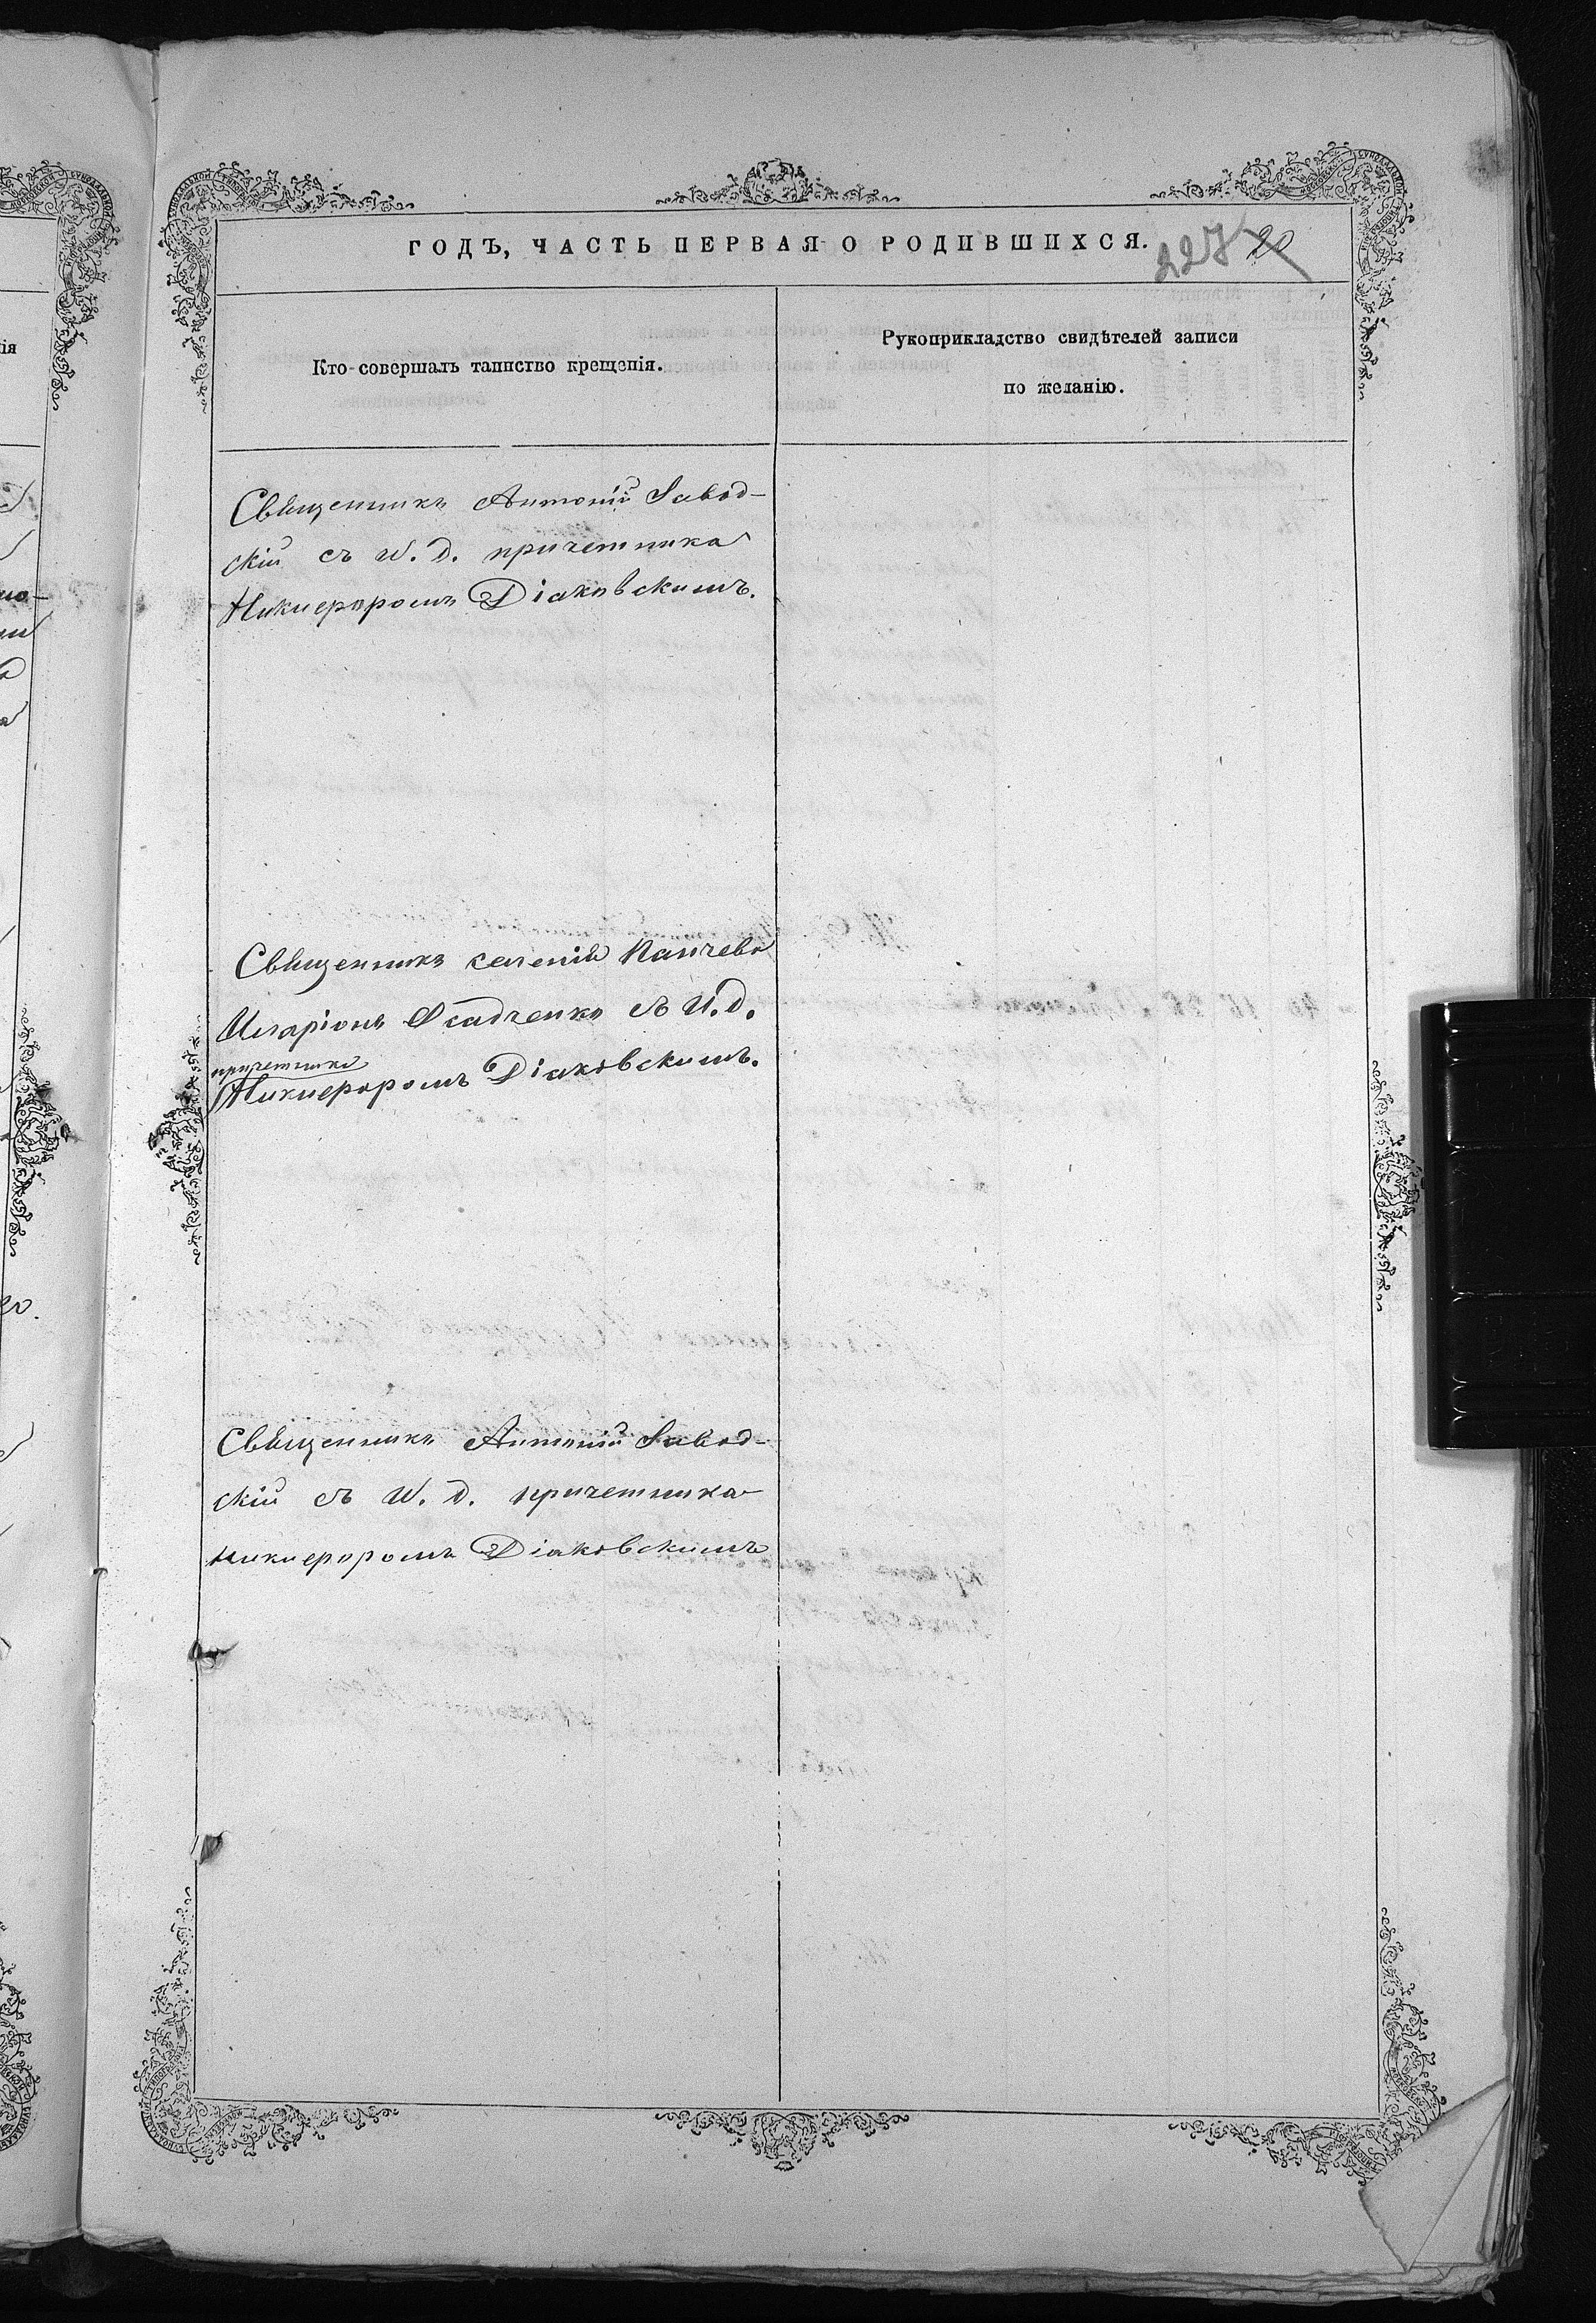 ГОДЪ, ЧАСТЬ ПЕРВАЯ О РОДИВШИХСЯ.
227 20
Кто совершалъ таинство крещенія.
Рукоприкладство свидѣтелей записи
по желанію.
Священникъ Антоній Завод-
скій съ И. д. причетника
Никифоромъ Діаковскимъ.
Священникъ селенія Панчево
Иларіонъ съ И. д.
причетника
Никифоромъ Діаковскимъ.
Священникъ Антоній Завод-
скій съ И. д. причетника
Никифоромъ Діаковскимъ